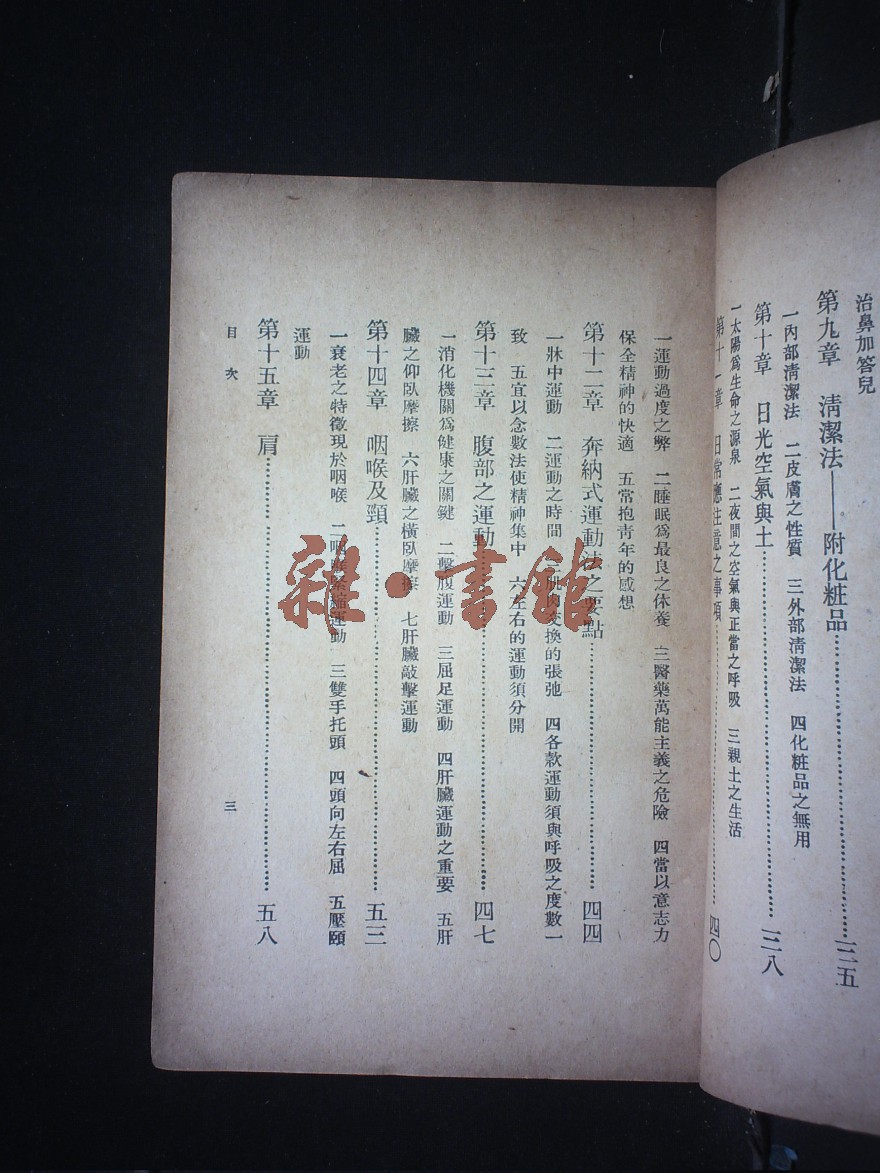 治鼻加答兒
第九章 清潔法——附化粧品……三五
一內部清潔法 二皮膚之性質 三外部清潔法 四化粧品之無用
第十章 日光空氣與土……三八
一太陽爲生命之源泉 二夜間之空氣與正當之呼吸 三親土之生活
第十一章 日常應注意之事項……四〇
一運動過度之弊 二睡眠爲最良之休養 三醫藥萬能主義之危險 四當以意志力
保全精神的快適 五常抱靑年的感想
第十二章 奔納式運動法之要點……四四
一牀中運動 二運動之時間 三肌肉交換的張弛 四各款運動須與呼吸之度數一
致 五宜以念數法使精神集中 六左右的運動須分開
第十三章 腹部之運動……四七
一消化機關爲健康之關鍵 二擊腹運動 三屈足運動 四肝臟運動之重要 五肝
臟之仰臥摩擦 六肝臟之橫臥摩擦 七肝臟敲擊運動
第十四章 咽喉及頸……五三
一衰老之特徵現於咽喉 二咽喉緊縮運動 三雙手托頭 四頭向左右屈 五壓頤
運動
第十五章 肩……五八
目次
三
雜·書館